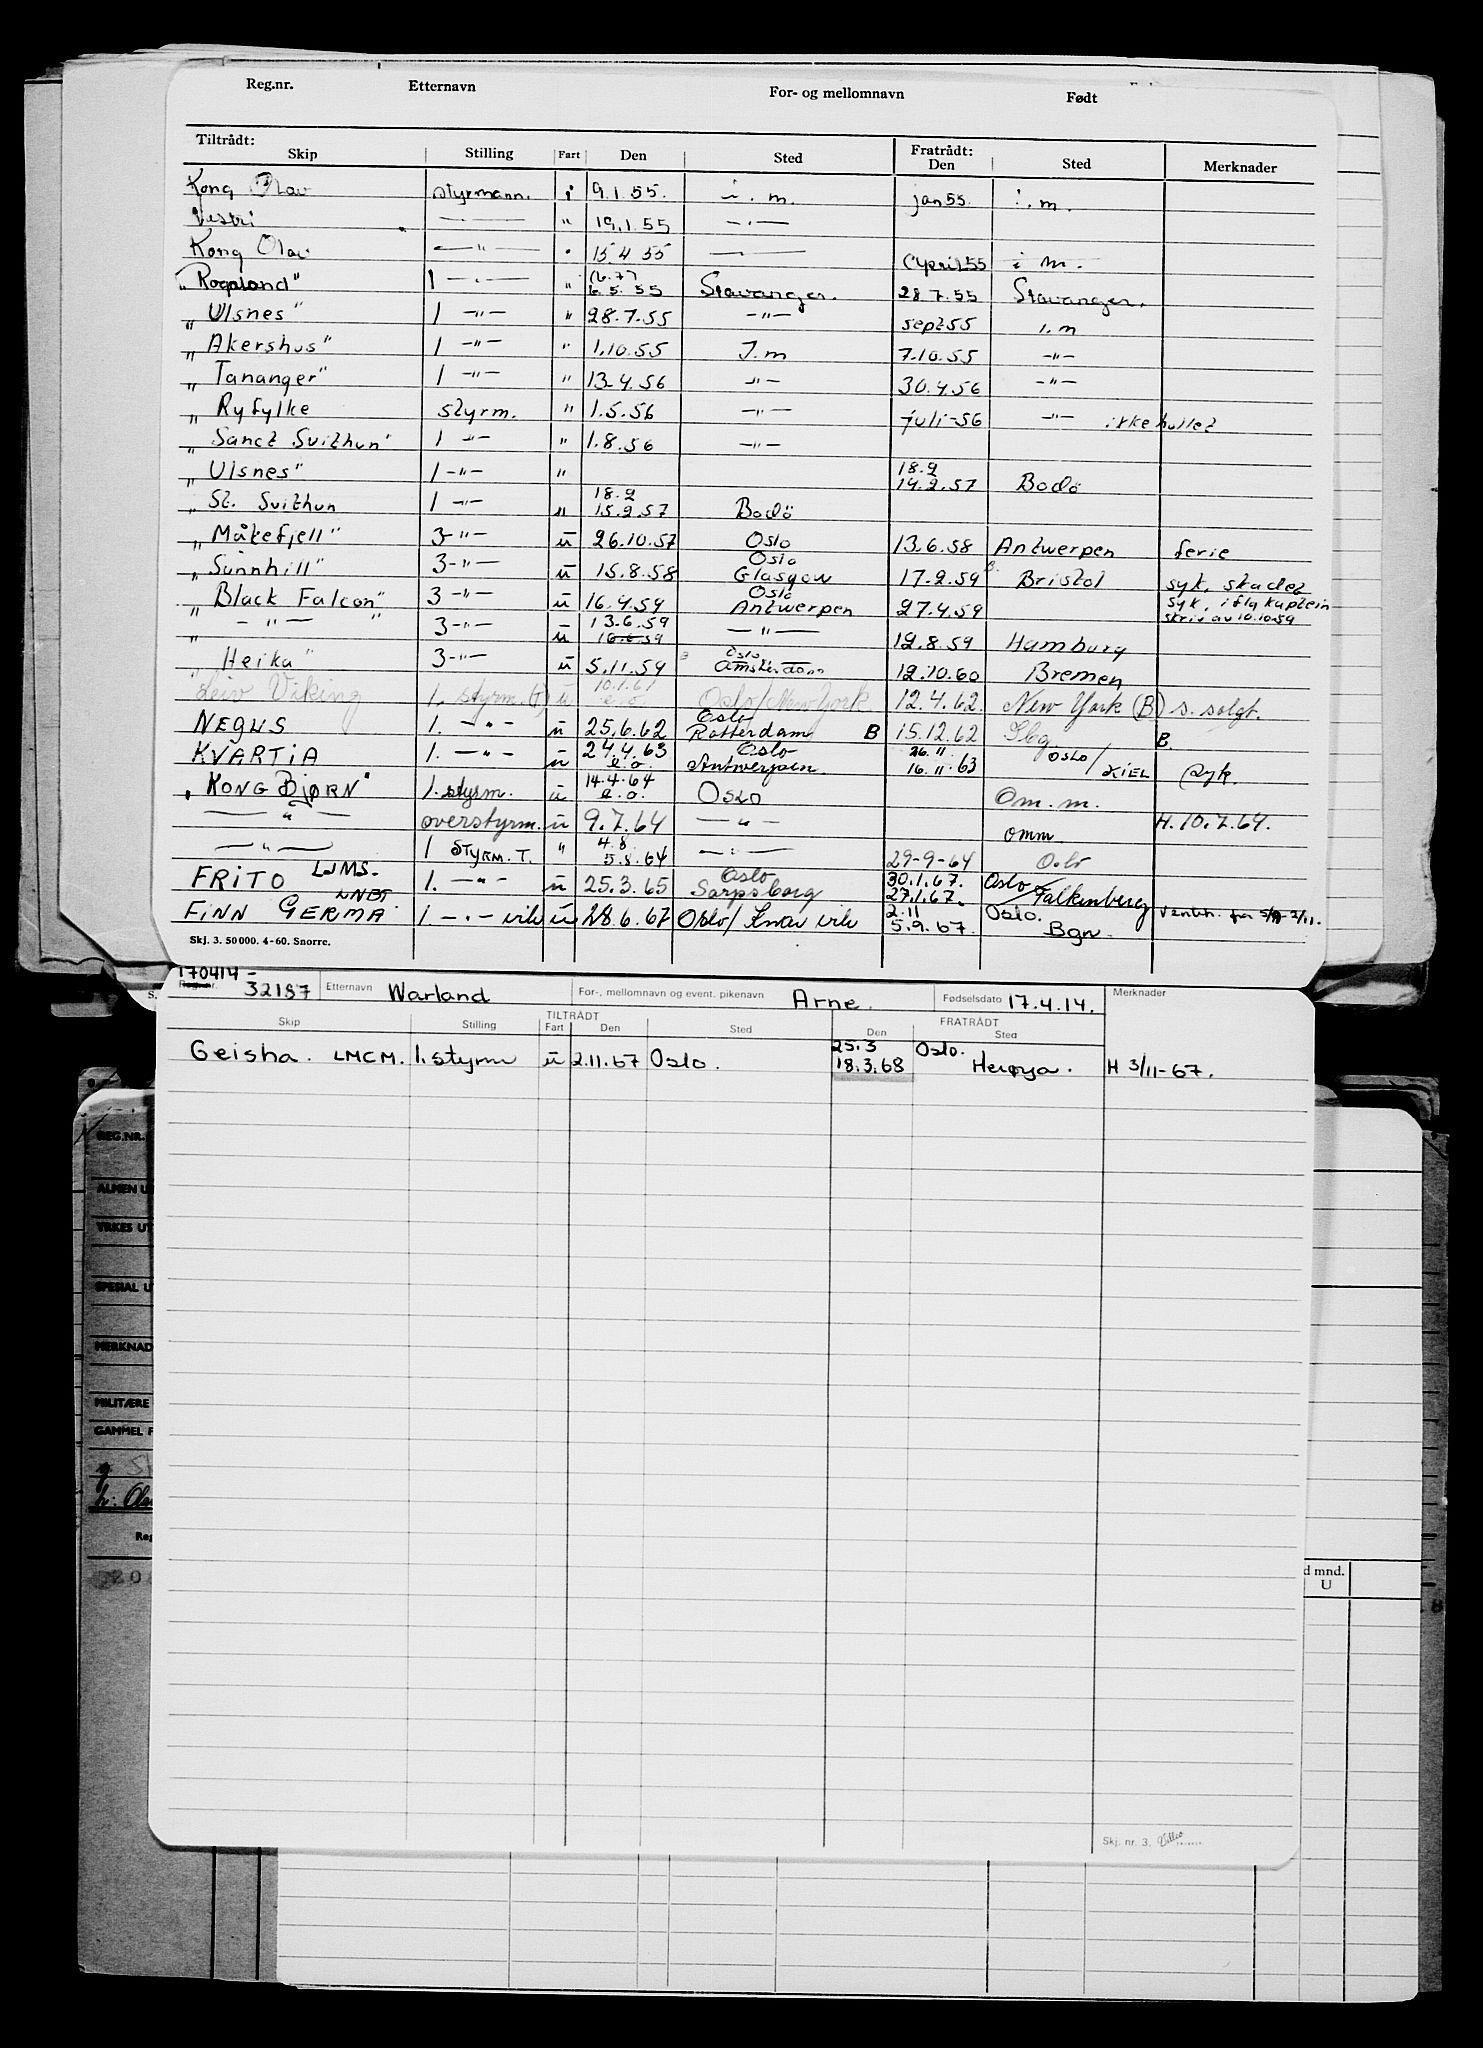 Reg.nr. Etternavn For- og mellomnavn Født
Tiltrådt: Skip Stilling Fart Den Sted Fratrådt: Den Sted Merknader
Kong Olav styrmann. i 9.1.55. i.m. jan 55. i.m.
Vestri —"— " 19.1.55 —"—
Kong Olav —"— " 15.4.55 —"— April 55 i m.
"Rogaland" 1 —"— " 6.5.55 Stavanger. 28.7.55 Stavanger.
"Ulsnes" 1 —"— " 28.7.55 —"— sept 55 i.m
"Akershus" 1 —"— " 1.10.55 I.m 7.10.55 —"—
"Tananger" 1 —"— " 13.4.56 —"— 30.4.56 —"—
"Ryfylke styrm. " 1.5.56 —"— juli-56 —"— ikke
"Sanct Svithun" 1 —"— " 1.8.56 —"—
"Ulsnes" 1 —"— " 18.2 14.2.57 Bodö
"St. Svithun 1 —"— " 18.2 15.2.57 Bodö
"Måkefjell" 3 —"— u 26.10.57 Oslo 13.6.58 Antwerpen ferie
"Sunnhill" 3 —"— u 15.8.58 Oslo Glasgow 17.2.59 Bristol syk, skadet
"Black Falcon" 3 —"— u 16.4.59 Oslo Antwerpen 27.4.59 syk, ifly kaptein skriv av 10.10.59
" —"— " 3 —"— u 13.6.59 16.6.59 —"— 12.8.59 Hamburg
"Heika" 3 —"— u 5.11.59 Oslo Amsterdam 12.10.60 Bremen
Leiv Viking 1. styrm. (T) u 10.1.61 e.o. Oslo/New York 12.4.62. New York (B) s. solgt.
NEGUS 1. —"— u 25.6.62 Oslo Rotterdam B 15.12.62 B
KVARTIA 1. —"— u 24.4.63 e.o. Oslo Antwerpen. 26.11 16.11.63 OSLO/KIEL Syk.
"KONG BJØRN" 1. styrm. u 14.4.64 e.o. OSLO Om.m.
—"— overstyrm. u 9.7.64 —"— omm H.10.7.64.
—"— 1 STYRM. T. " 4.8 5.8.64 —"— 29-9-64 Oslo
FRITO LJMS. 1. —"— u 25.3.65 Oslo Sarpsborg 30.1.67. 27.1.67. Oslo/Falkenberg
FINN GERMA LNBT 1 —"— vik u 28.6.67 Oslo/ vik 2.11 5.9.67. Oslo. Bgn.
Skj. 3. 50000. 4-60. Snorre.
170414-
Reg.nr. 32187 Etternavn Warland For-, mellomnavn og event. pikenavn Arne. Fødselsdato 17.4.14. Merknader
TILTRÅDT FRATRÅDT
Skip Stilling Fart Den Sted Den Sted
Geisha. LMCM. 1. styrm u 2.11.67 Oslo. 25.3 18.3.68 Oslo. Herøya. H 3/11-67.
Skj. nr. 3.
REG.NR.
ALMEN U
YRKES UT
SPESIAL U
MERKNAD
MILITÆRE
GAMMEL F
Reg
d mnd.
U